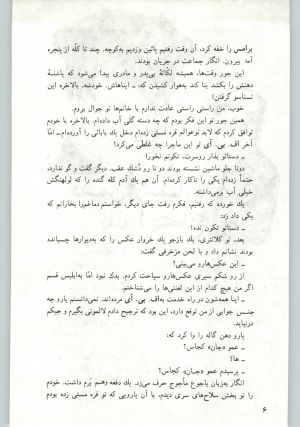 برامس را خفه کرد، آن وقت رفتیم پائین وزدیم به‌کوچه. چند تا کله از پنجره
آمد بیرون. انگار جماعت در جریان بودند.
این جور وقت‌ها، همیشه لکاتهٔ بی‌پدر و مادری پیدا می‌شود که پاشنهٔ
دهنش را بکشد بنا کند به‌هوار کشیدن که ـ ایناهاش، خودشه. بالاخره این
نسناسو گرفتن!
خوب. من راستی راستی عادت ندارم با خانم‌ها تو جوال بروم.
همین جور تو این فکر بودم که چه دسته گلی آب داده‌ام. بالاخره با خودم
توافق کردم که لابد توعوالم قره مستی زده‌ام دخل یك بابائی را آورده‌ام ـ اما
آخر اف. بی. آی تو این ماجرا چه غلطی می‌کرد؟
ـ دستاتو بذار روسرت، تکونم نخور!
دوتا جلو ماشین نشسته بودند. دو تا رو دُشك عقب. دیگر گفت و گو ندارد،
حتماً زده‌ام یکی را ناکار کرده‌ام. آن هم یك آدم کله گنده را که لولهنگش
خیلی آب برمی‌داشته.
یك خورده که رفتیم، فکرم رفت جای دیگر. خواستم دماغمو بخارانم که
یکی داد زد:
ـ دستاتو تکون نده!
بعد، تو کلانتری، یك بازجو یك خروار عکس را که به‌دیوارها چسبانده
بودند نشانم داد و با لحن مزخرفی گفت:
ـ این عکس‌هارو می‌بینی؟
از رو شکم سیری عکس‌هارو سیاحت کردم. یدك نبود امّا به‌ابلیس قسم
اگر من هیچ کدام از این لعنتی‌ها را می‌شناختم.
ـ اینا همه‌شون در راه خدمت به‌اف. بی. آی مرده‌اند. نمی‌دانستم یارو چه
جنسی جوابی از من توقع دارد، این بود که ترجیح دادم لالمونی بگیرم و جیکم
درنیاید.
یارو دهن گاله را وا کرد که:
ـ عمو «جان» کجاس؟
ـ ها؟
ـ پرسیدم عمو «جـان» کجاس؟
انگار به‌زبان یاجوج ماجوج حرف می‌زد. یك دفعه وهم برم داشت. خودم
را تو بخش سلاح‌های سری دیدم، با آن یارویی که تو قره مستی زده بودم
۶